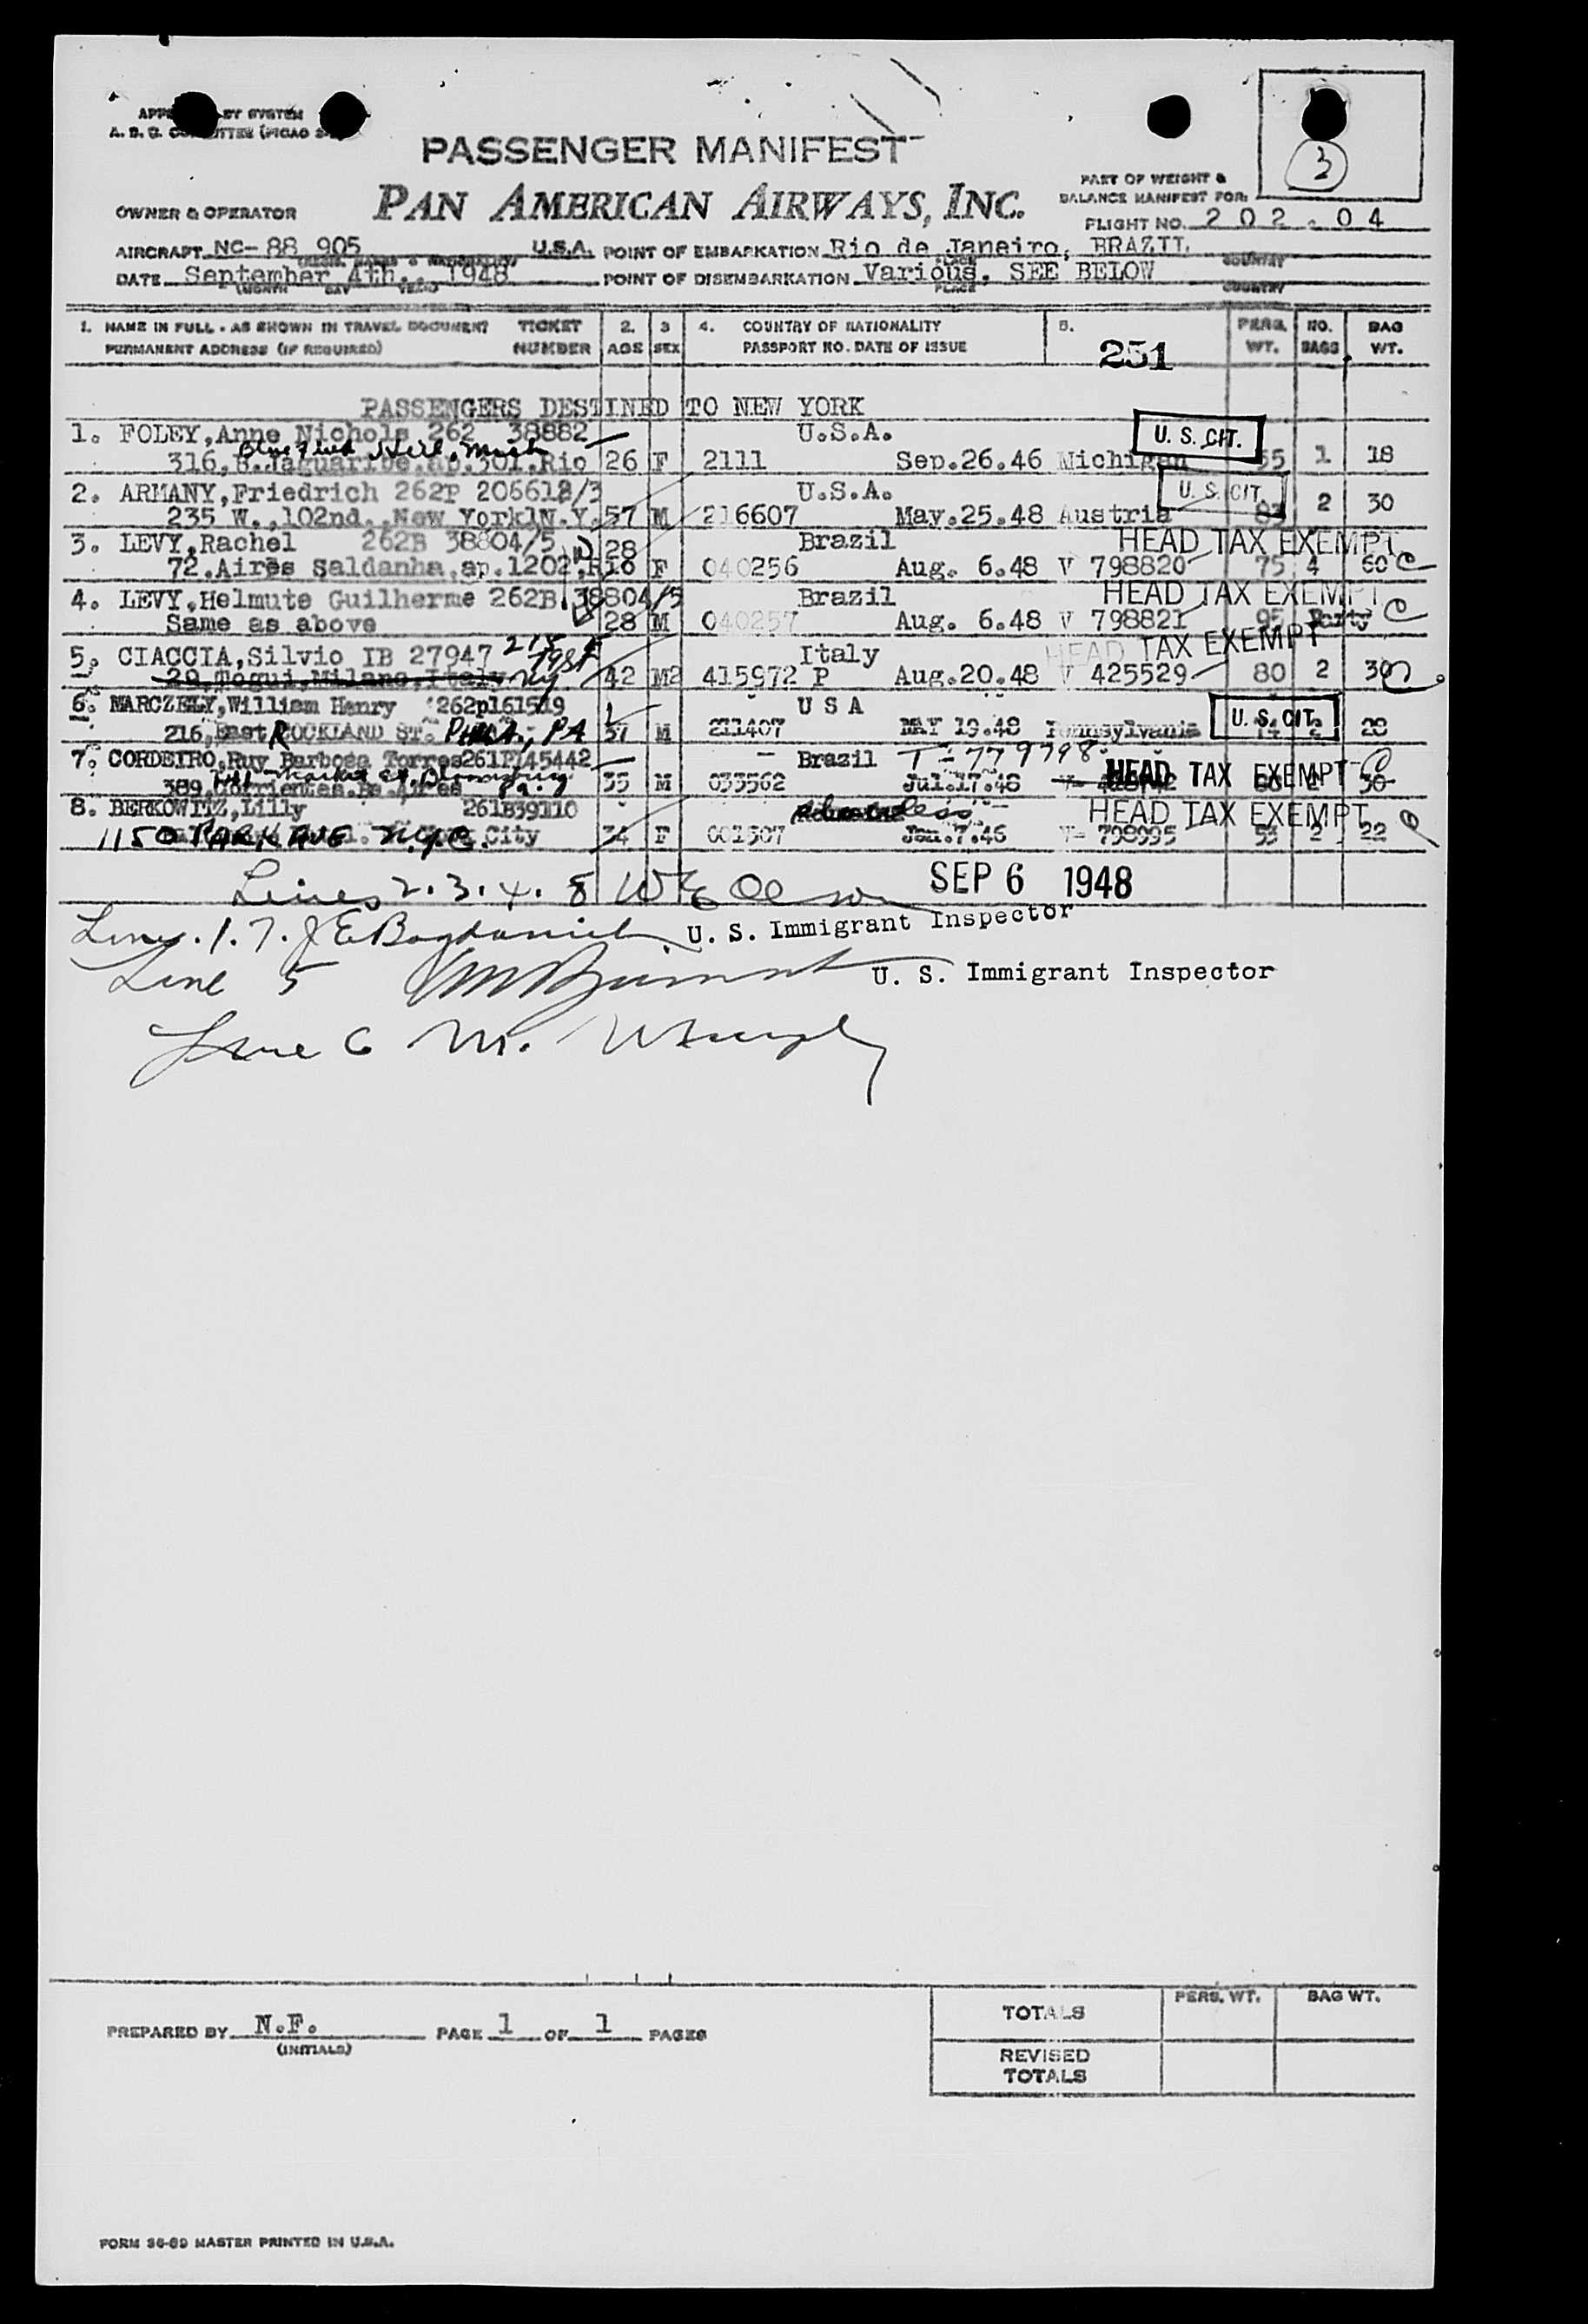 APP BY SYSTEM
A. B. C. COMMITTEE (PICAO
3
PASSENGER MANIFEST
PAN AMERICAN AIRWAYS, INC.
PART OF WEIGHT &
BALANCE MANIFEST FOR:
OWNER & OPERATOR
FLIGHT NO. 202-04
AIRCRAFT NC-88 905 U.S.A. POINT OF EMBARKATION Rio de Janeiro, BRAZIL
DATE September 4th., 1948 POINT OF DISEMBARKATION Various, SEE BELOW
(MONTH DAY YEAR) PLACE COUNTRY
1. NAME IN FULL - AS SHOWN IN TRAVEL DOCUMENT TICKET 2. 3 4. COUNTRY OF NATIONALITY 5. PERS. NO. BAG
PERMANENT ADDRESS (IF REQUIRED) NUMBER AGE SEX PASSPORT NO. DATE OF ISSUE 251 WT. BAGS WT.
PASSENGERS DESTINED TO NEW YORK
1. FOLEY,Anne Nichols 262 38882 U.S.A. U. S. CIT.
316,R.Jaguaribe.ap.301.Rio 26 F 2111 Sep.26.46 Michigan 55 1 18
2. ARMANY,Friedrich 262P 206612/3 U.S.A. U. S. CIT.
235 W.,102nd.,New York N.Y. 57 M 216607 May.25.48 Austria 83 2 30
3. LEVY,Rachel 262B 38804/5 28 Brazil HEAD TAX EXEMPT
72.Aires Saldanha,ap.1202,Rio F 040256 Aug. 6.48 V 798820 75 4 60 C
4. LEVY,Helmute Guilherme 262B 38804/5 Brazil HEAD TAX EXEMPT
Same as above 28 M 040257 Aug. 6.48 V 798821 95 Party C
5. CIACCIA,Silvio IB 27947 Italy HEAD TAX EXEMPT
20,Togui,Milano,Italy NY 42 M2 415972 P Aug.20.48 V 425529 80 2 30
6. MARCZELY,William Henry 262p161519 U S A U. S. CIT.
216,East ROCKLAND ST. PHILA, PA 37 M 211407 MAY 19.48 Pennsylvania 74 2 28
7. CORDEIRO,Ruy Barbosa Torres 261P145442 Brazil T-779798 HEAD TAX EXEMPT C
Market St. Bloomsburg Pa.
389,Corrientes.Bs.Aires 35 M 033562 Jul.17.48 30
8. BERKOWITZ,Lilly 261B39110 HEAD TAX EXEMPT
1150 PARK AVE N.Y.C. City 34 F 001507 Jan.7.46 V- 798995 53 2 22
Lines 2.3.4. 8 SEP 6 1948
U. S. Immigrant Inspector
Lines. 1. 7.
Line 5 U. S. Immigrant Inspector
Line 6 M.
PREPARED BY N.F. PAGE 1 OF 1 PAGES
(INITIALS)
PERS. WT. BAG WT.
TOTALS
REVISED
TOTALS
FORM 36-89 MASTER PRINTED IN U.S.A.